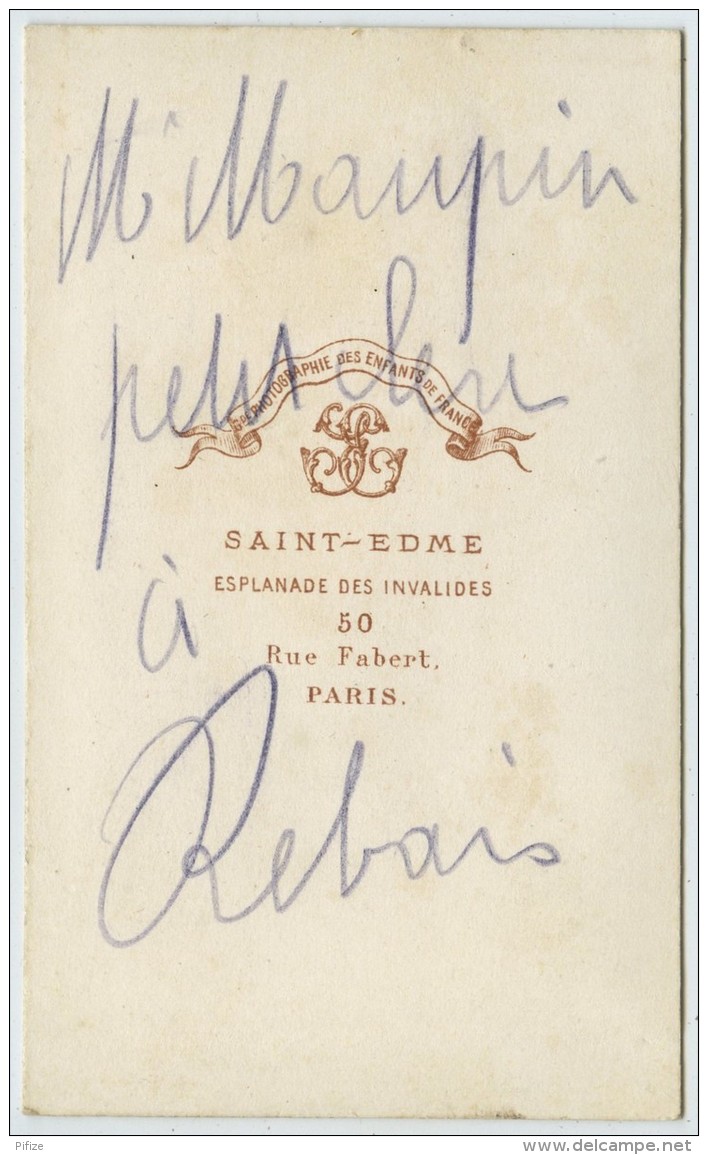 Mr Maupin
petit
Gde PHOTOGRAPHIE DES ENFANTS DE FRANCE
SAINT-EDME
ESPLANADE DES INVALIDES
50
à
Rue Fabert.
PARIS.
Rebais
Pifize
www.delcampe.net